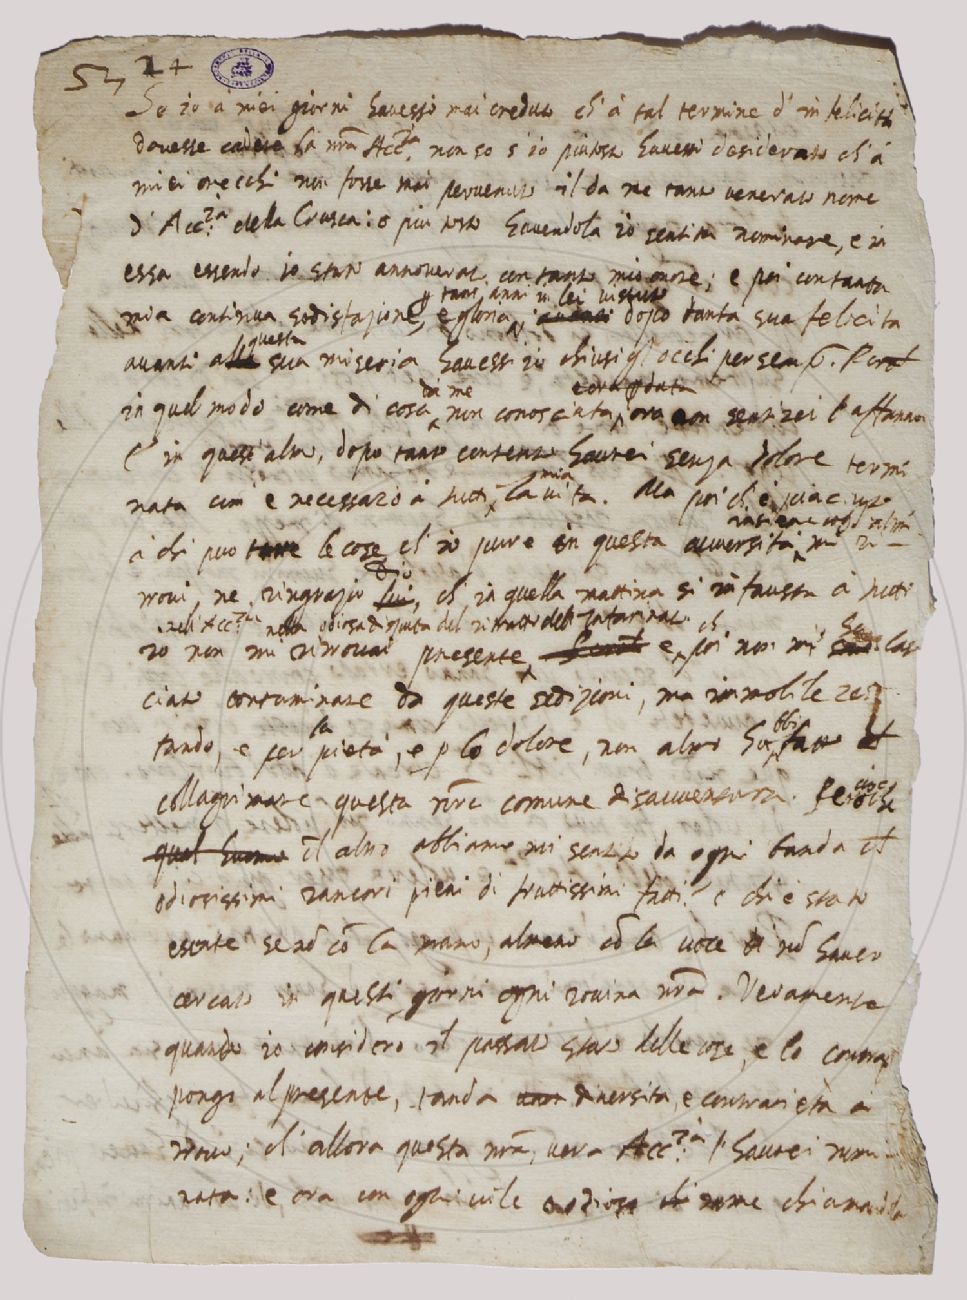 53 2 +
Se io a miei giorni havessi mai creduto ch' à tal termine d' infelicità
dovesse cadere la nrā Acc.ia, non so s' io piutosto havessi desiderato ch' à
miei orecchi non fosse mai pervenuto il da me tanto venerato nome
d' Acc.ia della Crusca: o piu tosto havendola io sentita nominare, e in
essa essendo io stato annoverato con tanto mio onore; e poi con tanta
tanti anni in lei vissuto
mia continua sodisfazione, e gloria dopo tanta sua felicita
questa
avanti alla sua miseria havess' io chiusi gl' occhi per sempr.
da me
in quel modo come di cosa non conosciuta, ora non sentirei l' affanno
E in quest' altro, dopo tanto contento haurei senza dolore termi
mia
nata com' è necessario à tutti la vita. Ma poi ch' è piaciuto
insieme
à chi può tutte le cose ch' io pure in questa avversità mi ri-
Dio
trovi, ne ringrazio lui, ch' in quella mattina si infausta à tutti
nell' Acc.ia nella odiosa disputa del ritratto dell' Infarinato
io non mi ritrovai presente e poi non mi son las
ciato contaminare da queste sedizioni, ma immobile res
la
tando, e per pietà, e p lo dolore, non altro habbi fatto ch'
collagrimare questa nrā comune disavventura. Percioche
qual huomo il altro abbiamo mi senzo da ogni banda
odiosissimi rancori pieni di bruttissimi fatti: e chi è stato
escate se nō cō la mano, almeno cō la voce di nō haver
cercato in questi giorni ogni rovina nrā. Veramente
quando io considero il passato stato delle cose, e lo contrap
pongo al presente, tanda diversità, e contrarietà ci
trovo; ch' allora questa nrā, vera Acc.ia l' haurei nomi-
nata: e ora con ogni vile odioso nome chiamarla